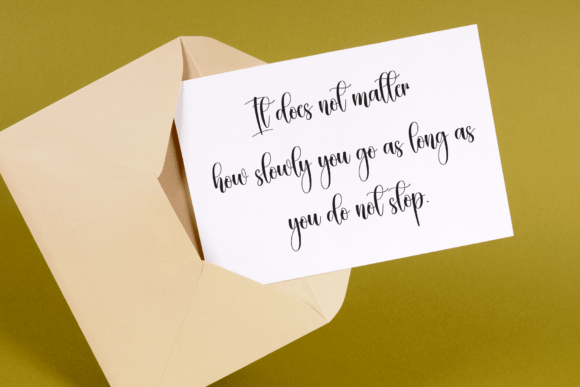 It does not matter
how slowly you go as long as
you do not stop.